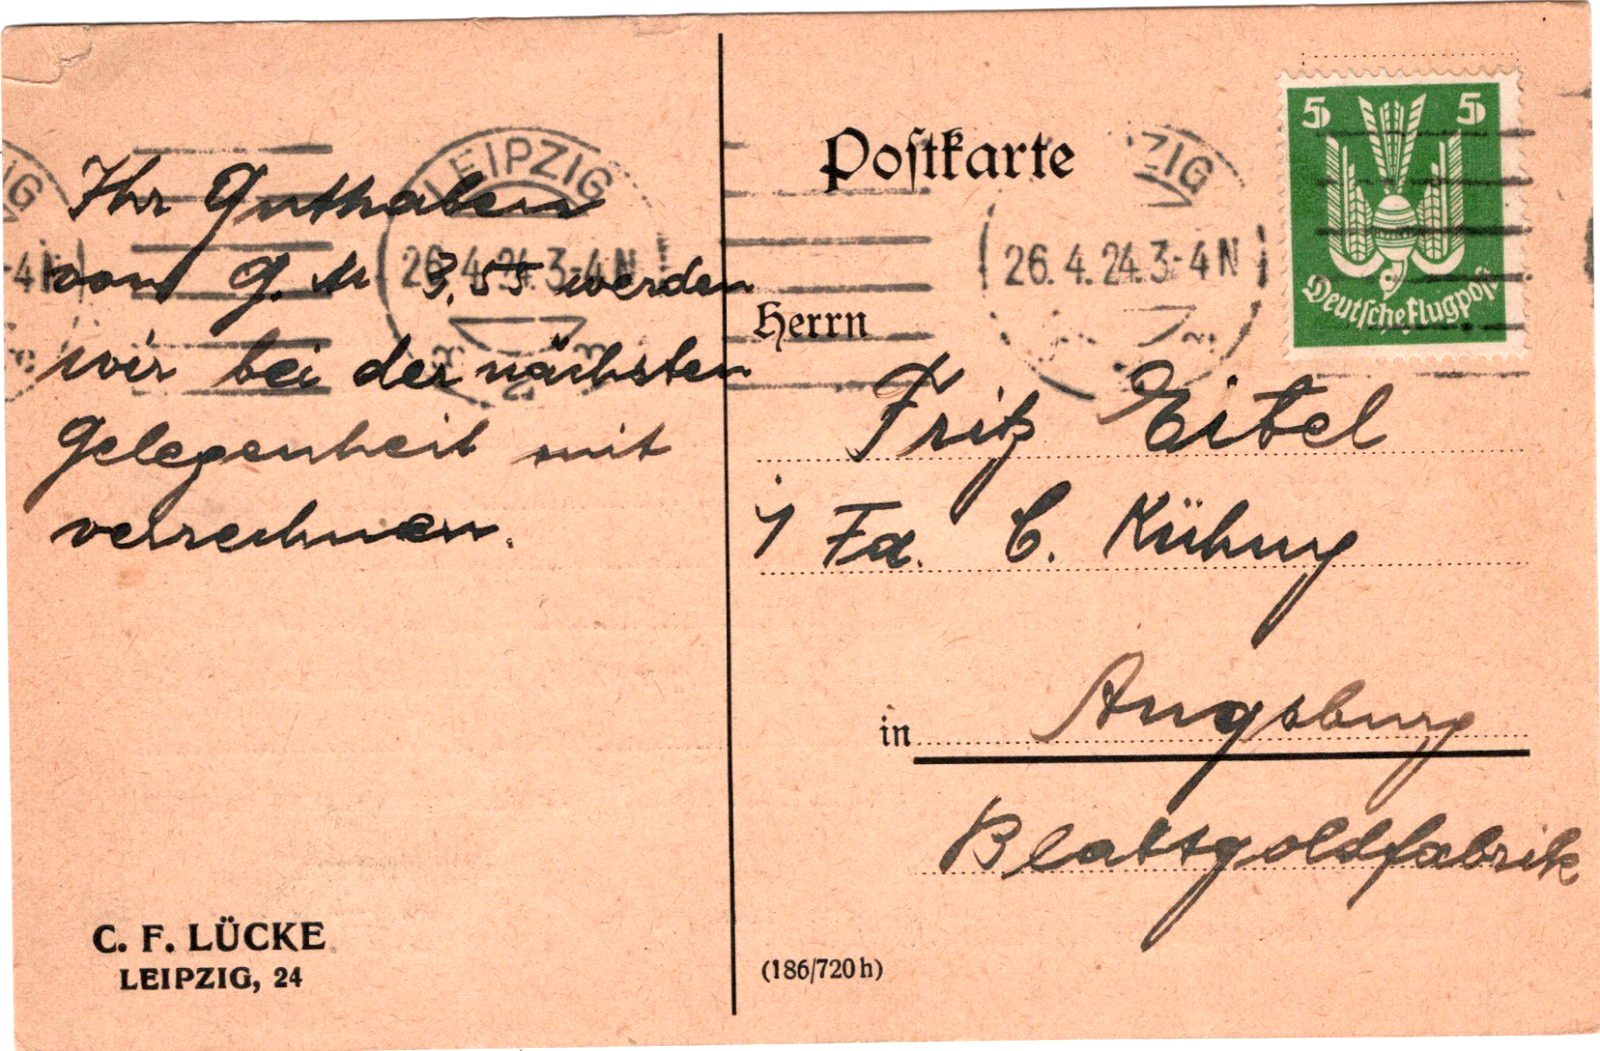 Ihr Guthaben
von G. M 3,55 werden
wir bei der nächsten
Gelegenheit mit
verrechnen.
C. F. LÜCKE
LEIPZIG, 24
LEIPZIG
26.4.24.3-4N
Poſtkarte
ZIG
26.4.24.3-4N
5 5
Deutſche Flugpoſt
Herrn
Fritz Eitel
i/ Fa. C. Kühny
in Augsburg
Blattgoldfabrik
(186/720h)
IG
-4N